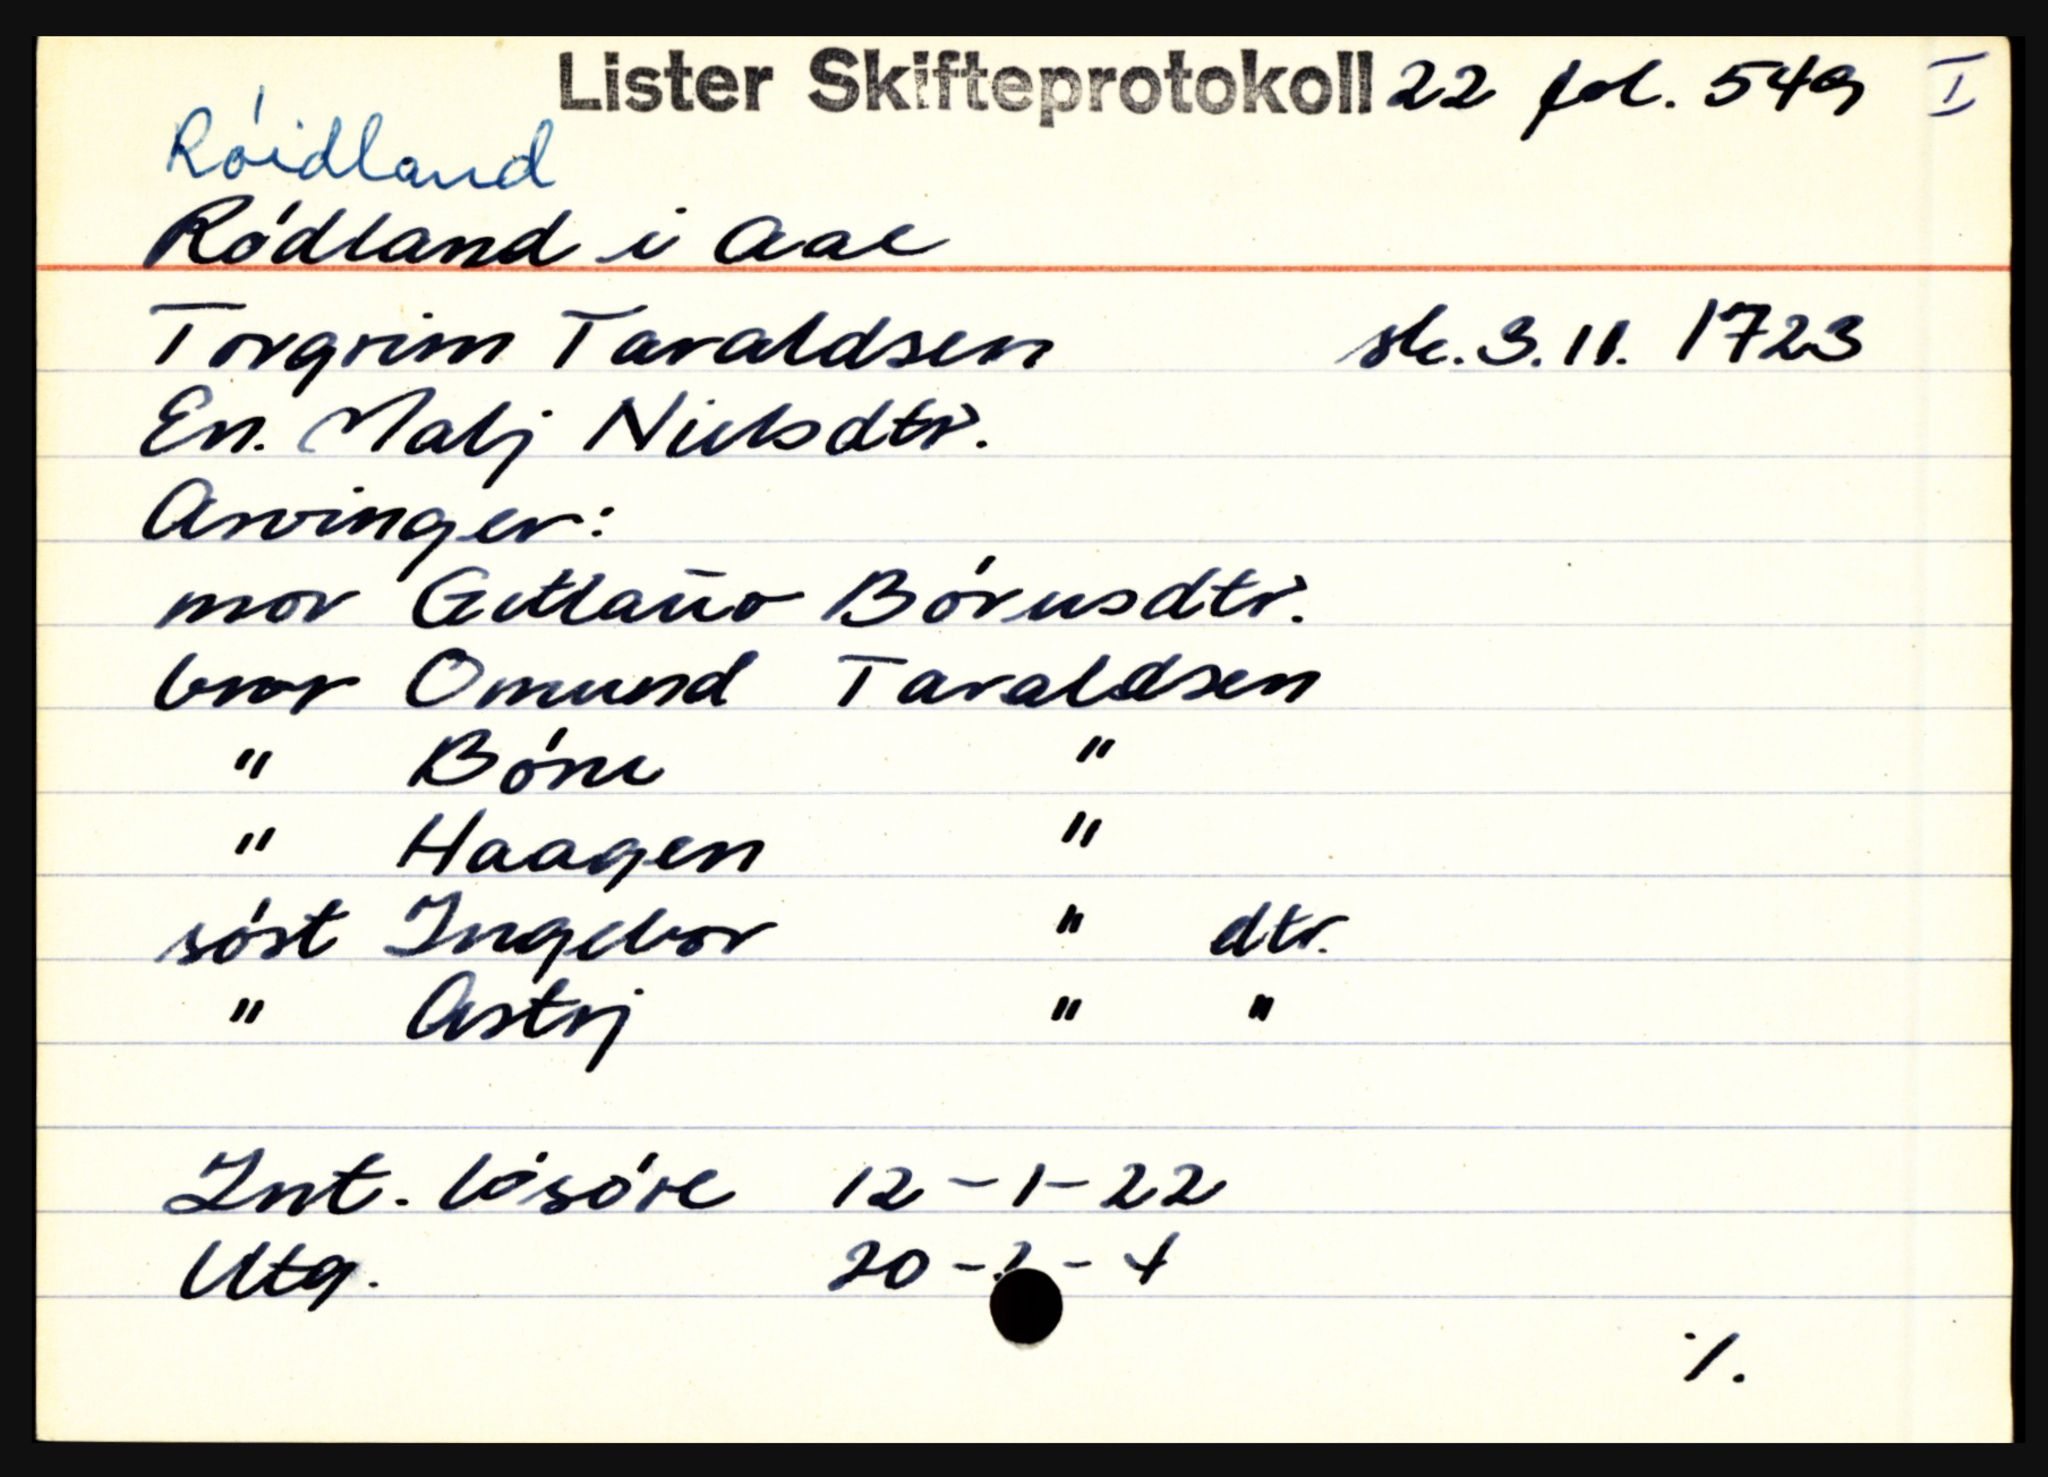 Lister Skifteprotokoll 22 fol. 549 I
Róidland
Ródland i Aae
Torgrim Taraldsen sk. 3.11. 1723
En. Malj Nielsdtr.
Arvinger:
mor Gitlaūo Börnsdtr.
bror Omund Taraldsen
" Bórne "
" Haagen "
sóst Ingebor " dtr.
" Astrj " "
Int. lósóre 12-1-22
Utg. 20-2-4
./.